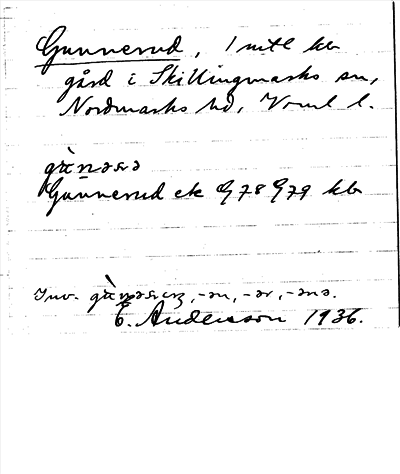 Gunnerud, 1 mtl kb
gård i Skillingmarks sn,
Nordmarks hd, Vrml l.
Gunnerud ek G78 G79 kb
Inv. -ən, -ər, -ənə.
E. Anderson 1936.